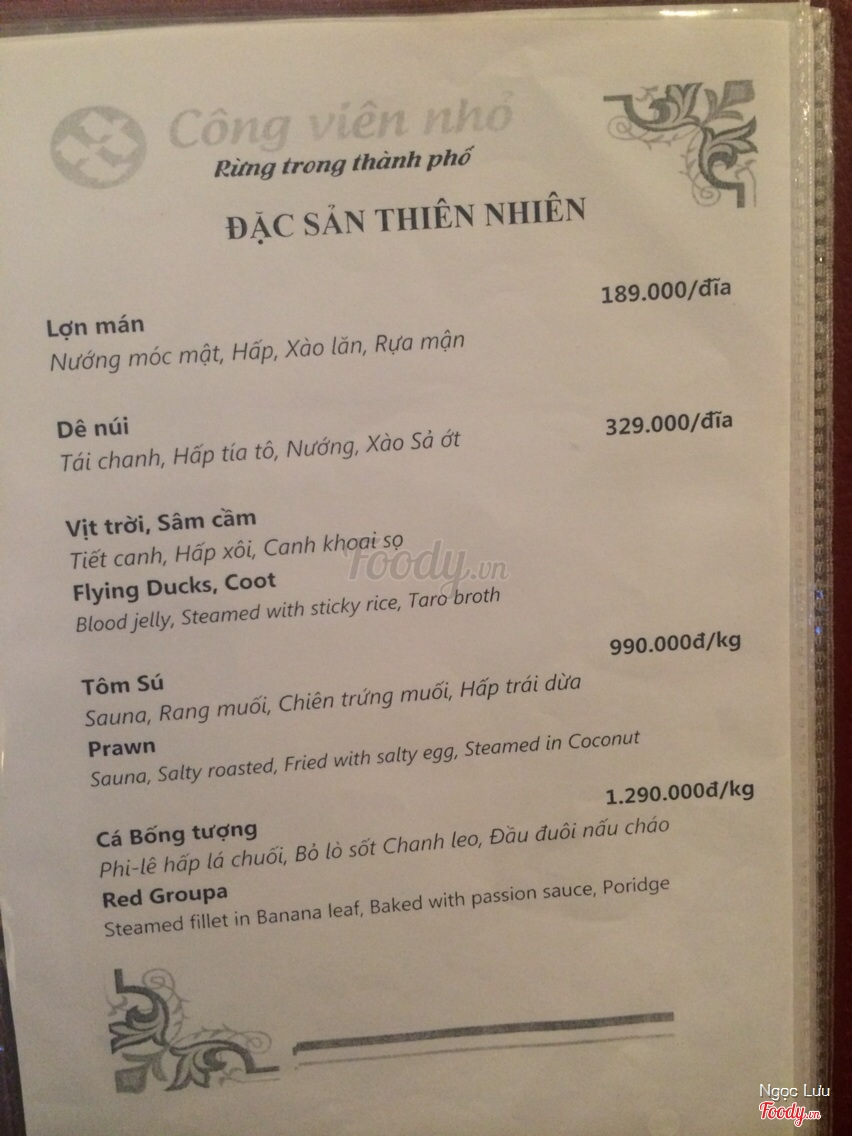 Công viên nhỏ
Rừng trong thành phố
ĐẶC SẢN THIÊN NHIÊN
189.000/đĩa
Lợn mán
Nướng móc mật, Hấp, Xào lăn, Rựa mận
329.000/đĩa
Dê núi
Tái chanh, Hấp tía tô, Nướng, Xào Sả ớt
Vịt trời, Sâm cầm
Tiết canh, Hấp xôi, Canh khoai sọ
Foody.vn
Flying Ducks, Coot
Blood jelly, Steamed with sticky rice, Taro broth
990.000đ/kg
Tôm Sú
Sauna, Rang muối, Chiên trứng muối, Hấp trái dừa
Prawn
Sauna, Salty roasted, Fried with salty egg, Steamed in Coconut
1.290.000đ/kg
Cá Bống tượng
Phi-lê hấp lá chuối, Bỏ lò sốt Chanh leo, Đầu đuôi nấu cháo
Red Groupa
Steamed fillet in Banana leaf, Baked with passion sauce, Poridge
Ngọc Lưu
Foody.vn